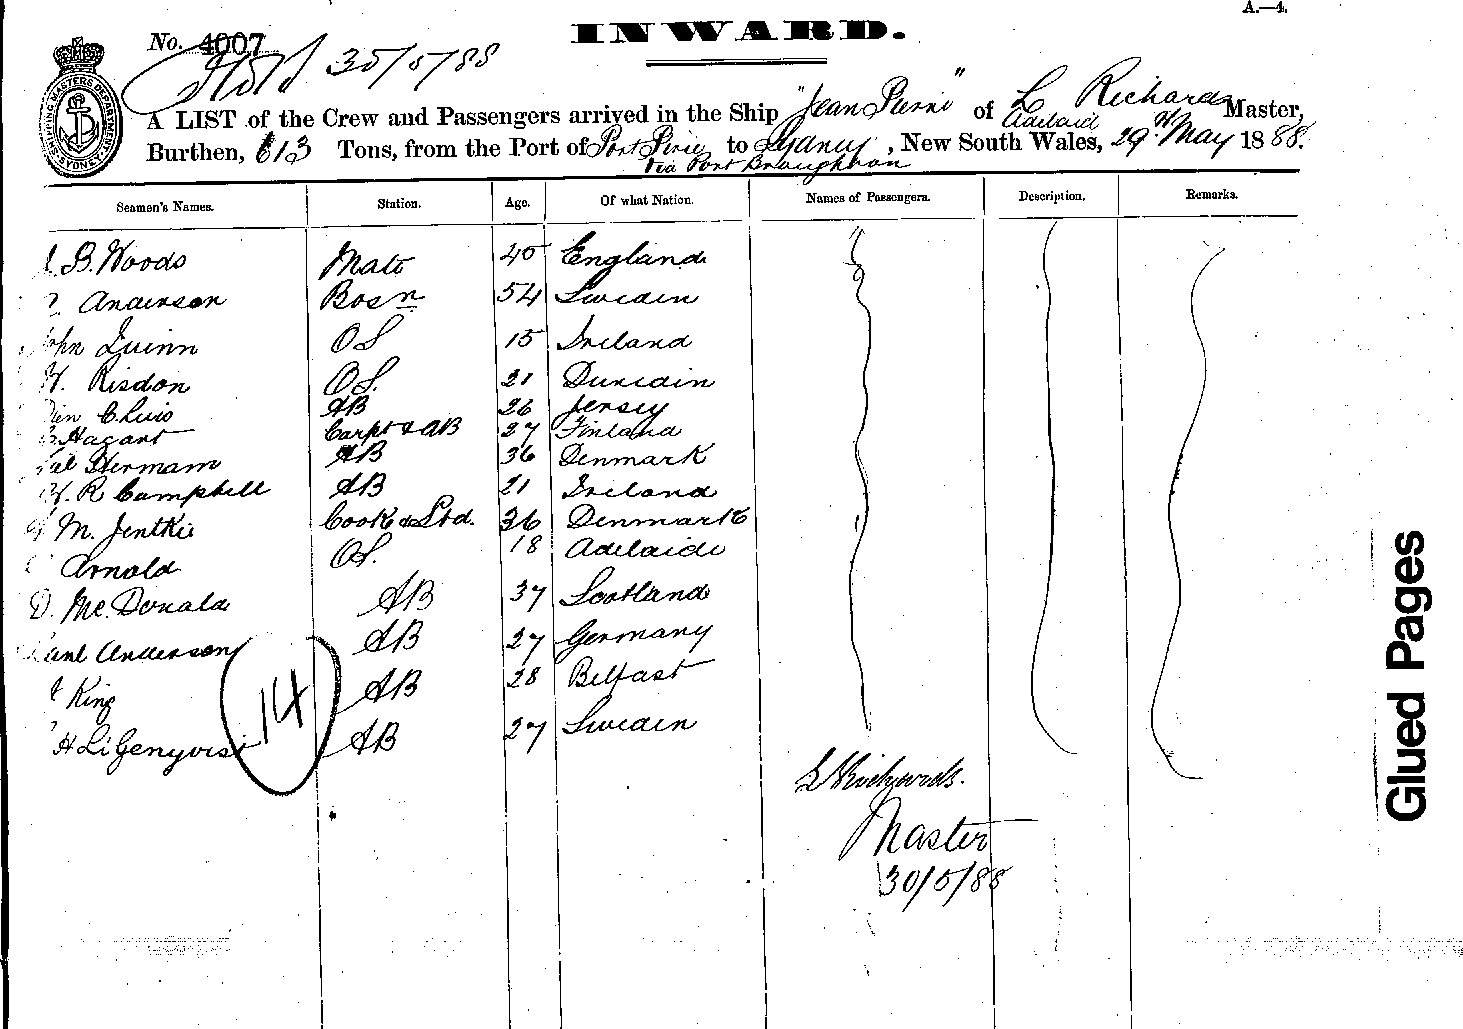 A.—4.
INWARD.
No. 4007
30/5/88
SHIPPING MASTERS DEPARTMENT SYDNEY
A LIST of the Crew and Passengers arrived in the Ship "Jean Pierre" of Adelaide L Richards Master,
Burthen, 613 Tons, from the Port of Port Pirie to Sydney, New South Wales, 29th May 1888.
via Port Broughton
Seamen's Names. Station. Age. Of what Nation. Names of Passengers. Description. Remarks.
B. Woods Mate 40 England
Anderson Bosn 54 Sweden
John Quinn OS 15 Ireland
H. Risdon OS. 21 Dunedin
AB 26 Jersey
Hagart Carpt & AB 27 Finland
Hermam AB 36 Denmark
R Campbell AB 21 Ireland
M. Jentke Cook & Std. 36 Denmark
Arnold OS. 18 Adelaide
D. McDonald AB 37 Scotland
Carl Anderson AB 27 Germany
King AB 28 Belfast
H AB 27 Sweden
14
L Richards.
Master
30/5/88
Glued Pages